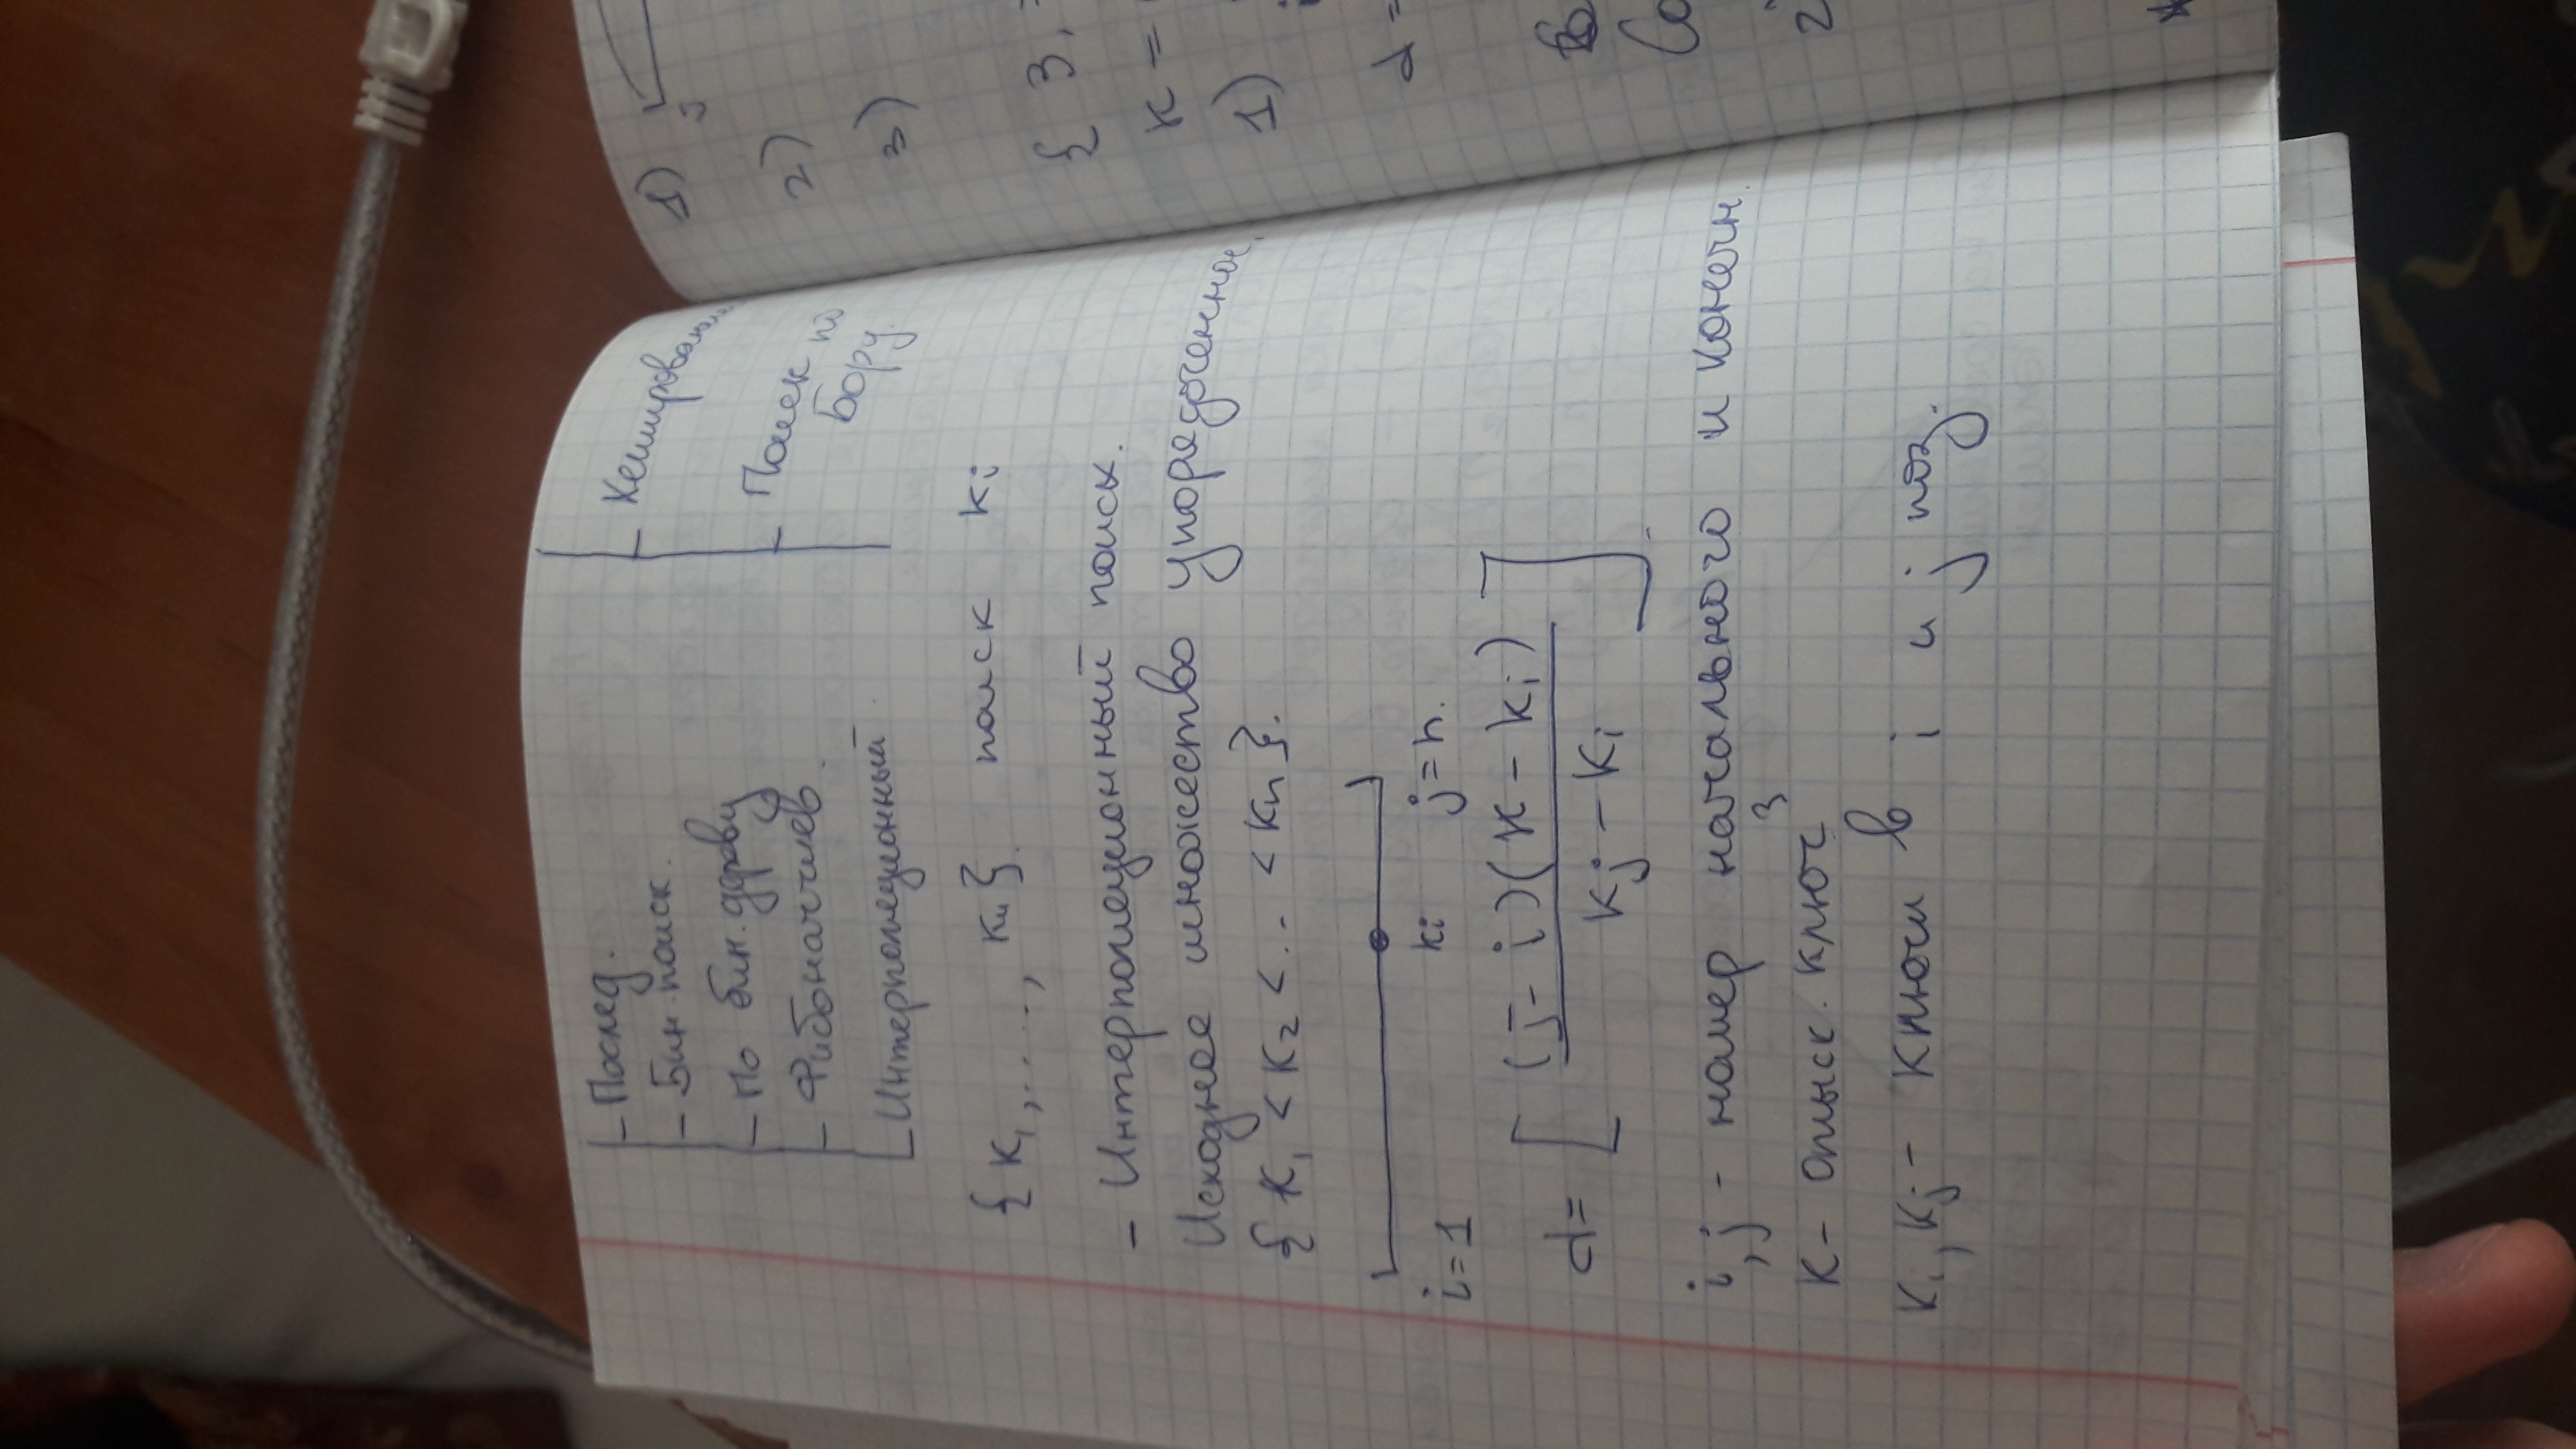 - Послед.
- Бин. поиск.
- По бин. дереву
- Фибоначчиев.
- Интерполяционный
- Хеширование
- Поиск по
Бору.
{K₁, ...., Kn}. поиск Ki
- Интерполяционный поиск.
Исходное множество упорядоченное.
{K₁ < K₂ < .. < Kn}.
ki
i=1 j=n.
d = [(j - i)(K - Ki) / Kj - Ki].
i, j - номер начального и конечн.
з
K - отыск. ключ
Ki, Kj - ключи в i и j поз.
1)
2)
3)
{ 3,
K =
1)
d =
2